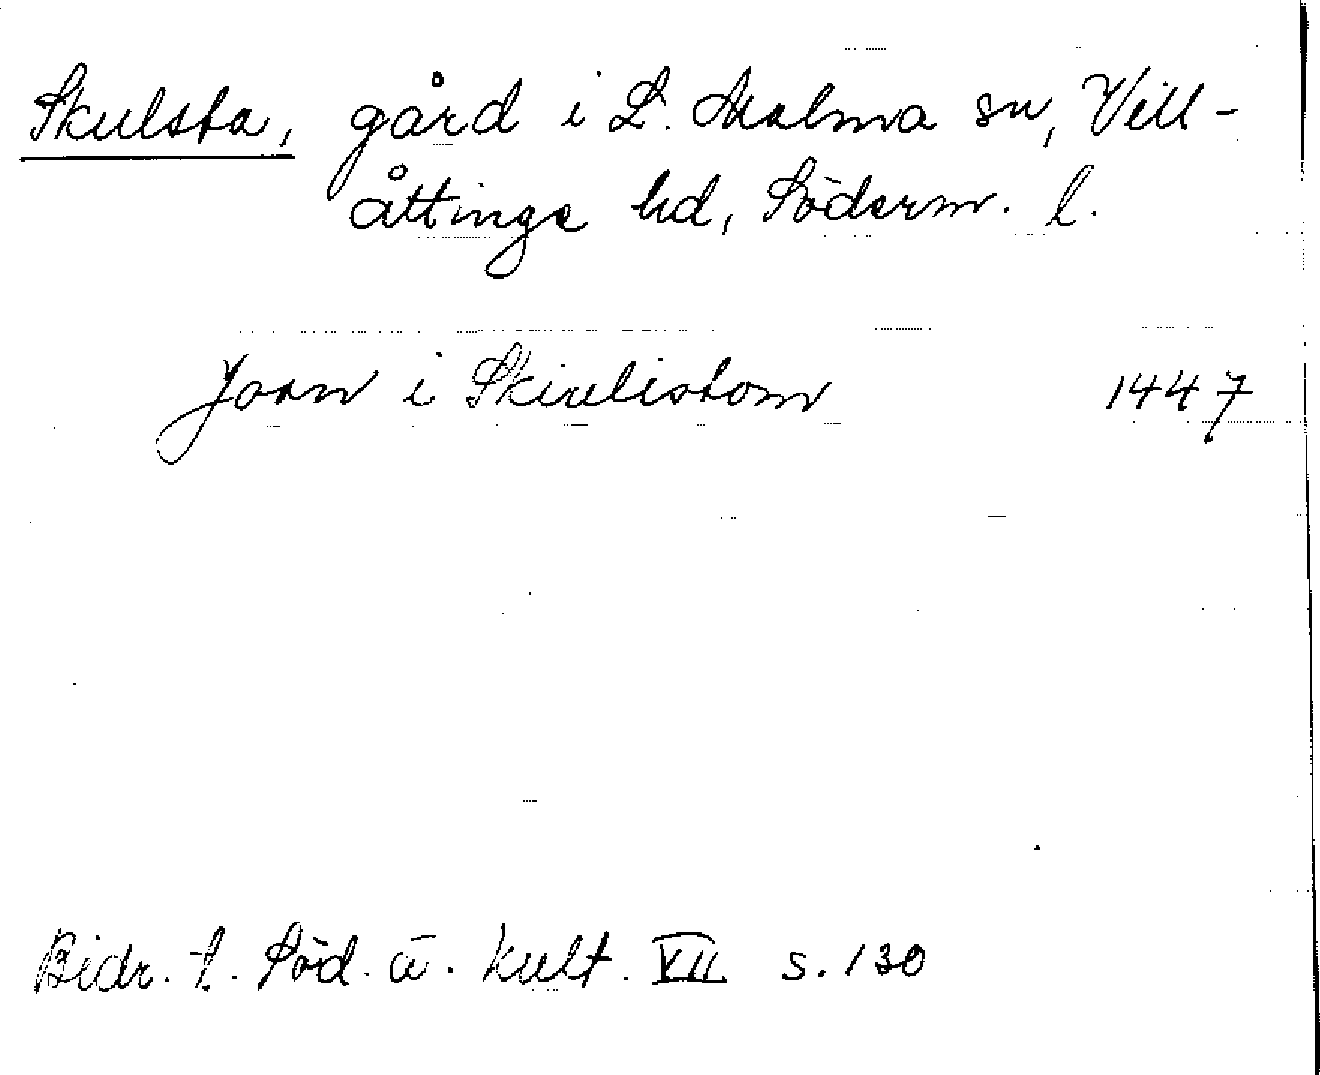 Skulsta, gård i L. Malma sn, Vill-
åttinge hd, Söderm. l.
Joan i Skirelistom 1447
Bidr. t. Söd. ä. kult. VII s. 130